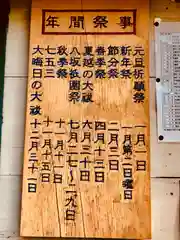 年間祭事
元旦祈願祭 一月一日
新年祭 一月第二日曜日
節分祭 二月三日
春季祭 四月十三日
夏越の大祓 六月三十日
八坂祇園祭 七月二七〜二九日
秋季祭 十月十一日
七五三 十一月十五日
大晦日の大祓 十二月三十一日